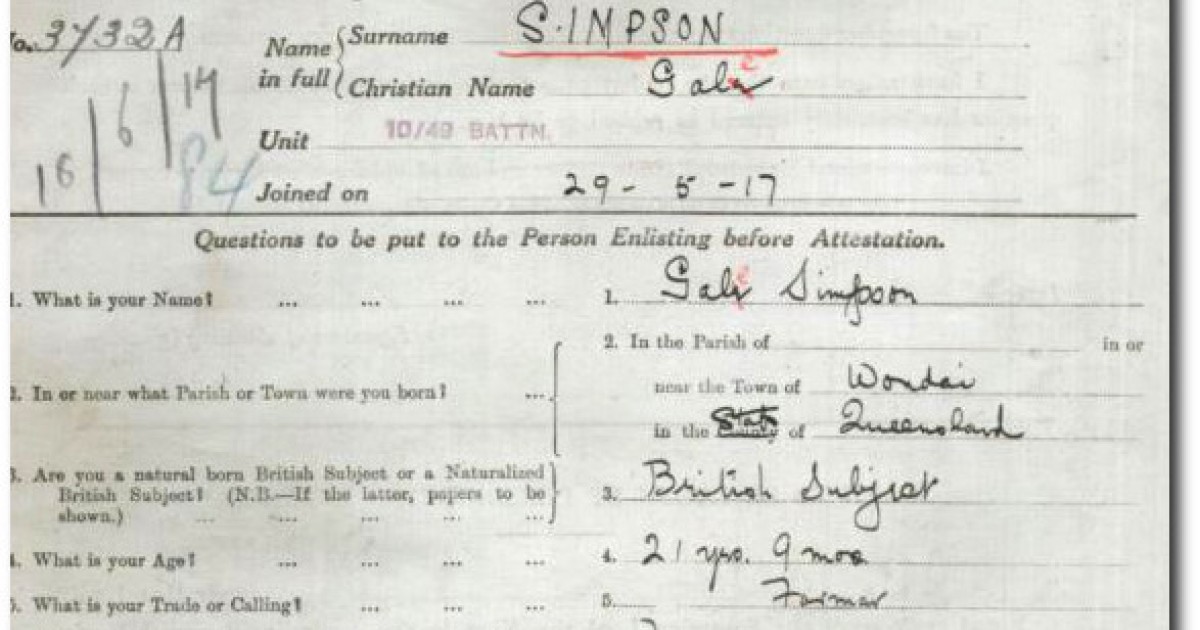 No. 3732A
Name in full { Surname SIMPSON
Christian Name Gale
16/6/17
84
Unit 10/49 BATTN.
Joined on 29 - 5 - 17
Questions to be put to the Person Enlisting before Attestation.
1. What is your Name? ... ... ... ... 1. Gale Simpson
2. In the Parish of in or
2. In or near what Parish or Town were you born? ... near the Town of Wondai
in the State County of Queensland
3. Are you a natural born British Subject or a Naturalized
British Subject? (N.B.—If the latter, papers to be 3. British Subject
shown.) ... ... ... ... ...
4. What is your Age? ... ... ... ... 4. 21 yrs. 9 mos
5. What is your Trade or Calling? ... ... ... 5. Farmer